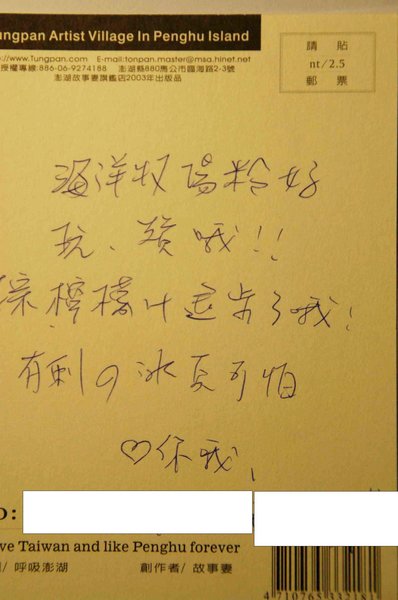 ungpan Artist Village In Penghu Island
//www.Tungpan.com E-mail:tonpan.master@msa.hinet.net
授權專線:886-06-9274188 澎湖縣880馬公市臨海路2-3號
澎湖故事妻旗艦店2003年出版品
請貼
nt/2.5
郵票
海洋牧場粉好
玩、讚哦!!
檸檬汁進步了哦!
有剩の冰 可怕
♡你我
D:
ve Taiwan and like Penghu forever
/ 呼吸澎湖 創作者/ 故事妻
4710765332181